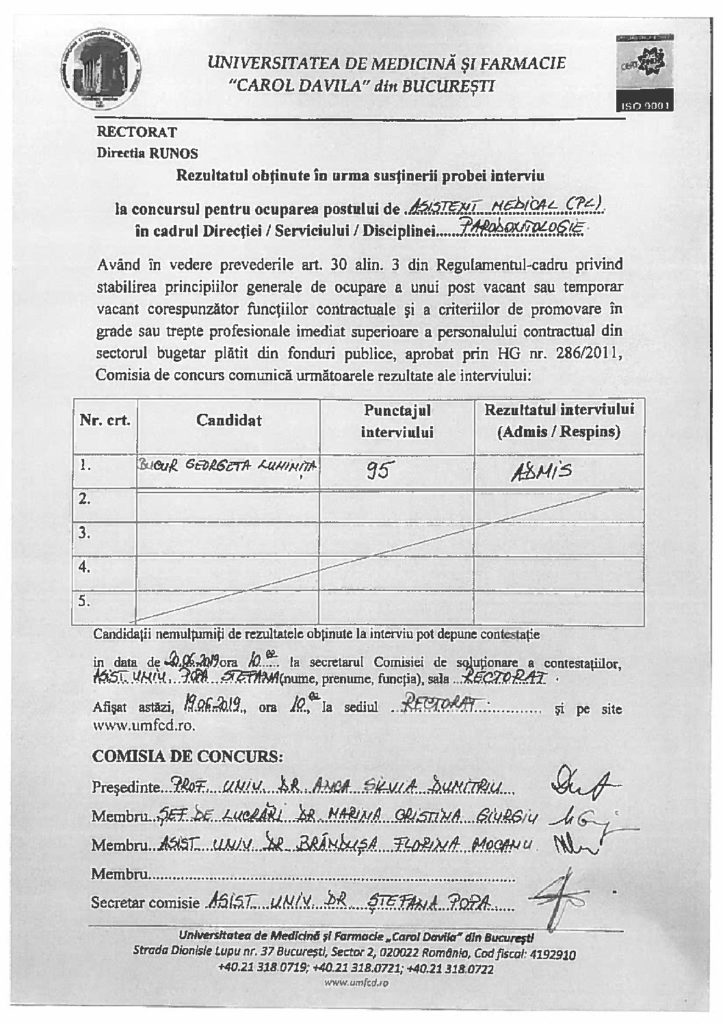 UNIVERSITATEA DE MEDICINĂ ȘI FARMACIE
"CAROL DAVILA" din BUCUREȘTI
ISO 9001
RECTORAT
Directia RUNOS
Rezultatul obținute în urma susținerii probei interviu
la concursul pentru ocuparea postului de ASISTENT MEDICAL (PL)
în cadrul Direcției / Serviciului / Disciplinei.....PARODONTOLOGIE.
Având în vedere prevederile art. 30 alin. 3 din Regulamentul-cadru privind
stabilirea principiilor generale de ocupare a unui post vacant sau temporar
vacant corespunzător funcțiilor contractuale și a criteriilor de promovare în
grade sau trepte profesionale imediat superioare a personalului contractual din
sectorul bugetar plătit din fonduri publice, aprobat prin HG nr. 286/2011,
Comisia de concurs comunică următoarele rezultate ale interviului:
Nr. crt. Candidat Punctajul interviului Rezultatul interviului (Admis / Respins)
1. BUCUR GEORGETA LUMINIȚA 95 ADMIS
2.
3.
4.
5.
Candidații nemulțumiți de rezultatele obținute la interviu pot depune contestație
in data de 20.06.2019 ora 10.00 la secretarul Comisiei de soluționare a contestațiilor,
ASIST. UNIV. POPA ȘTEFANA (nume, prenume, funcția), sala ...RECTORAT.
Afișat astăzi, 19.06.2019, ora 10,00 la sediul ..RECTORAT............ și pe site
www.umfcd.ro.
COMISIA DE CONCURS:
Președinte...PROF. UNIV. DR. ANCA SILVIA DUMITRIU...
Membru..ȘEF DE LUCRĂRI DR. MARINA CRISTINA GIURGIU
Membru..ASIST. UNIV. DR BRÂNDUȘA FLORINA MOCANU
Membru..............................
Secretar comisie ASIST. UNIV. DR ȘTEFANA POPA
Universitatea de Medicină și Farmacie „Carol Davila" din București
Strada Dionisie Lupu nr. 37 București, Sector 2, 020022 România, Cod fiscal: 4192910
+40.21 318.0719; +40.21 318.0721; +40.21 318.0722
www.umfcd.ro